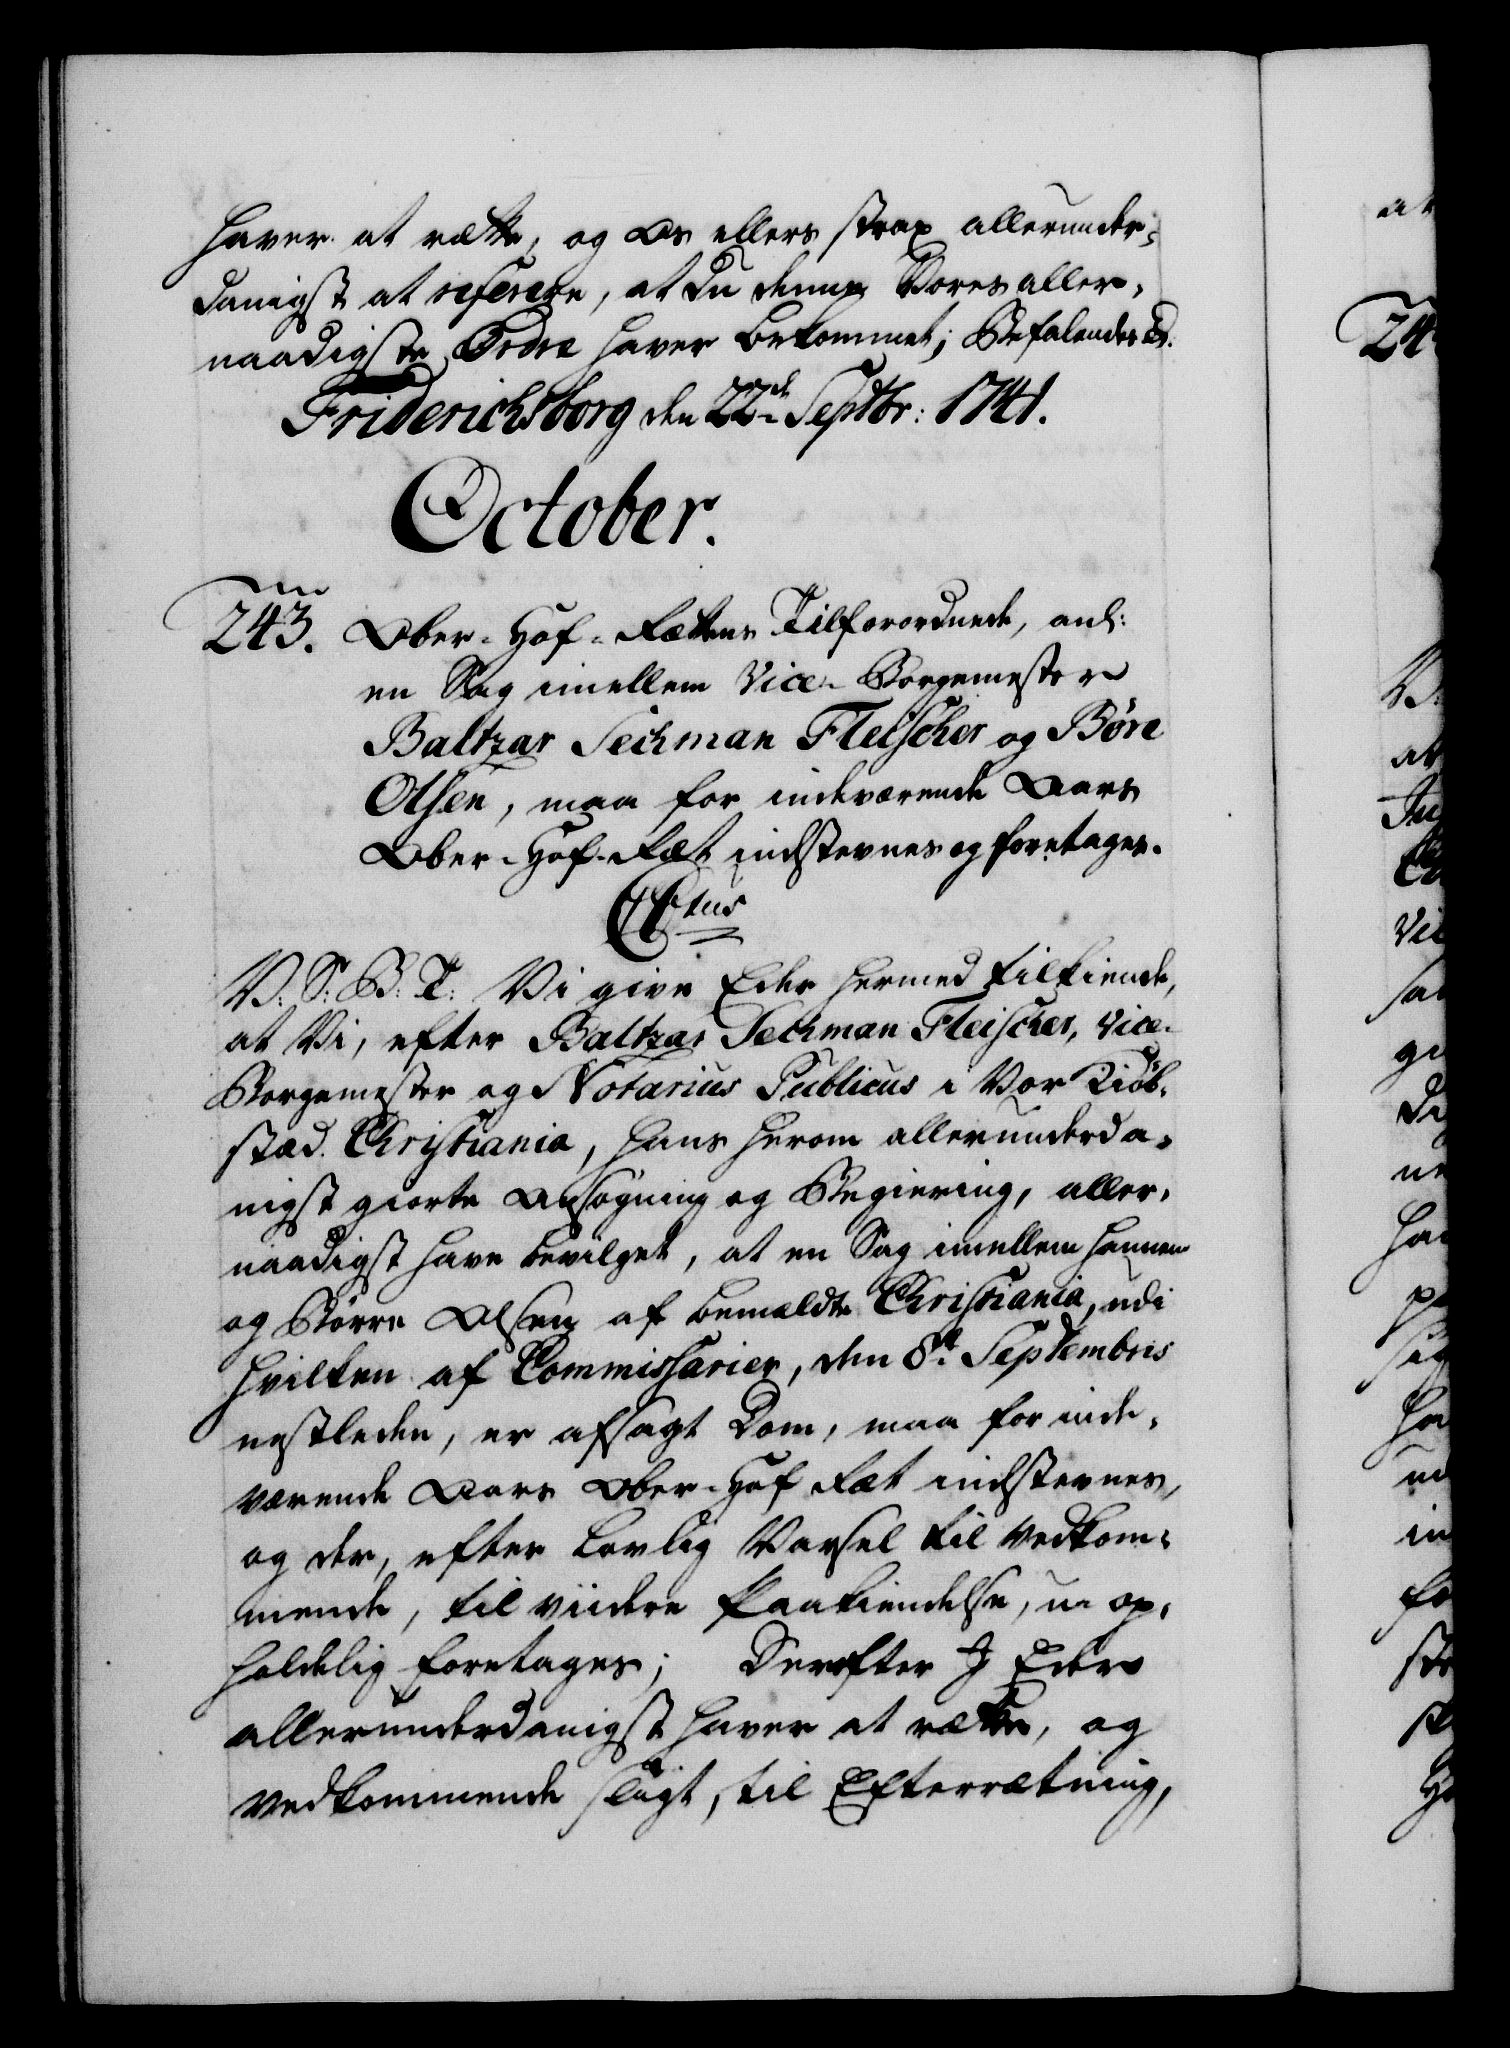 haver at rætte, og Os ellers strax allerunder-
danigst at referere, at Du denne Vores aller-
naadigste Ordre haver bekommet; Befalendes &.
Friderichsborg den 22de Septbr: 1741.
October.
243. Ober-Hof-Rettens Tilforordnede, anl:
en Sag imellem Vice-Borgemester
Baltzar Sechman Fleischer og Børe
Olsen, maa for indeværende Aars
Ober-Hof-Ræt indstevnes og foretages.
V: S: B: T: Vi give Eder hermed tilkiende,
at Vi, efter Baltzar Sechman Fleischer, Vice-
Borgemester og Notarius Publicus i Vor Kiøb-
stæd Christiania, hans herom allerunderda-
nigst giorte Ansøgning og Begiering, aller-
naadigst have bevilget, at en Sag imellem hannem
og Børre Olsen af bemældte Christiania, udi
hvilken af Commissarier, den 8de Septembris
nestleden, er afsagt Dom, maa for inde-
værende Aars Ober-Hof Ræt indstevnes,
og der, efter Lovlig Varsel til Vedkom-
mende, til viidere Paakiendelse, u-op-
holdelig foretages; Derefter I Eder
allerunderdanigst haver at rætte, og
Vedkommende sligt, til Efterrætning,